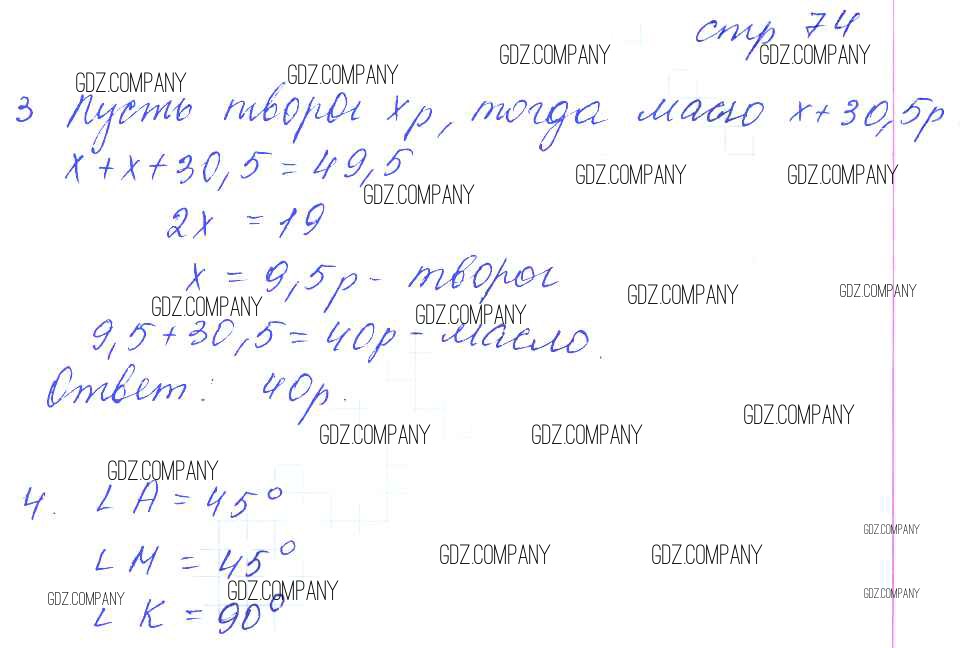 стр 74
GDZ.COMPANY GDZ.COMPANY
GDZ.COMPANY GDZ.COMPANY
3 Пусть творог x р, тогда масло x+30,5р.
x+x+30,5=49,5
GDZ.COMPANY GDZ.COMPANY GDZ.COMPANY
2x =19
x = 9,5р - творог
GDZ.COMPANY GDZ.COMPANY GDZ.COMPANY GDZ.COMPANY
9,5+30,5=40р - масло.
Ответ: 40р.
GDZ.COMPANY GDZ.COMPANY GDZ.COMPANY
GDZ.COMPANY
4. ∠ A = 45°
GDZ.COMPANY
∠ M = 45°
GDZ.COMPANY GDZ.COMPANY
GDZ.COMPANY GDZ.COMPANY GDZ.COMPANY
∠ K = 90°